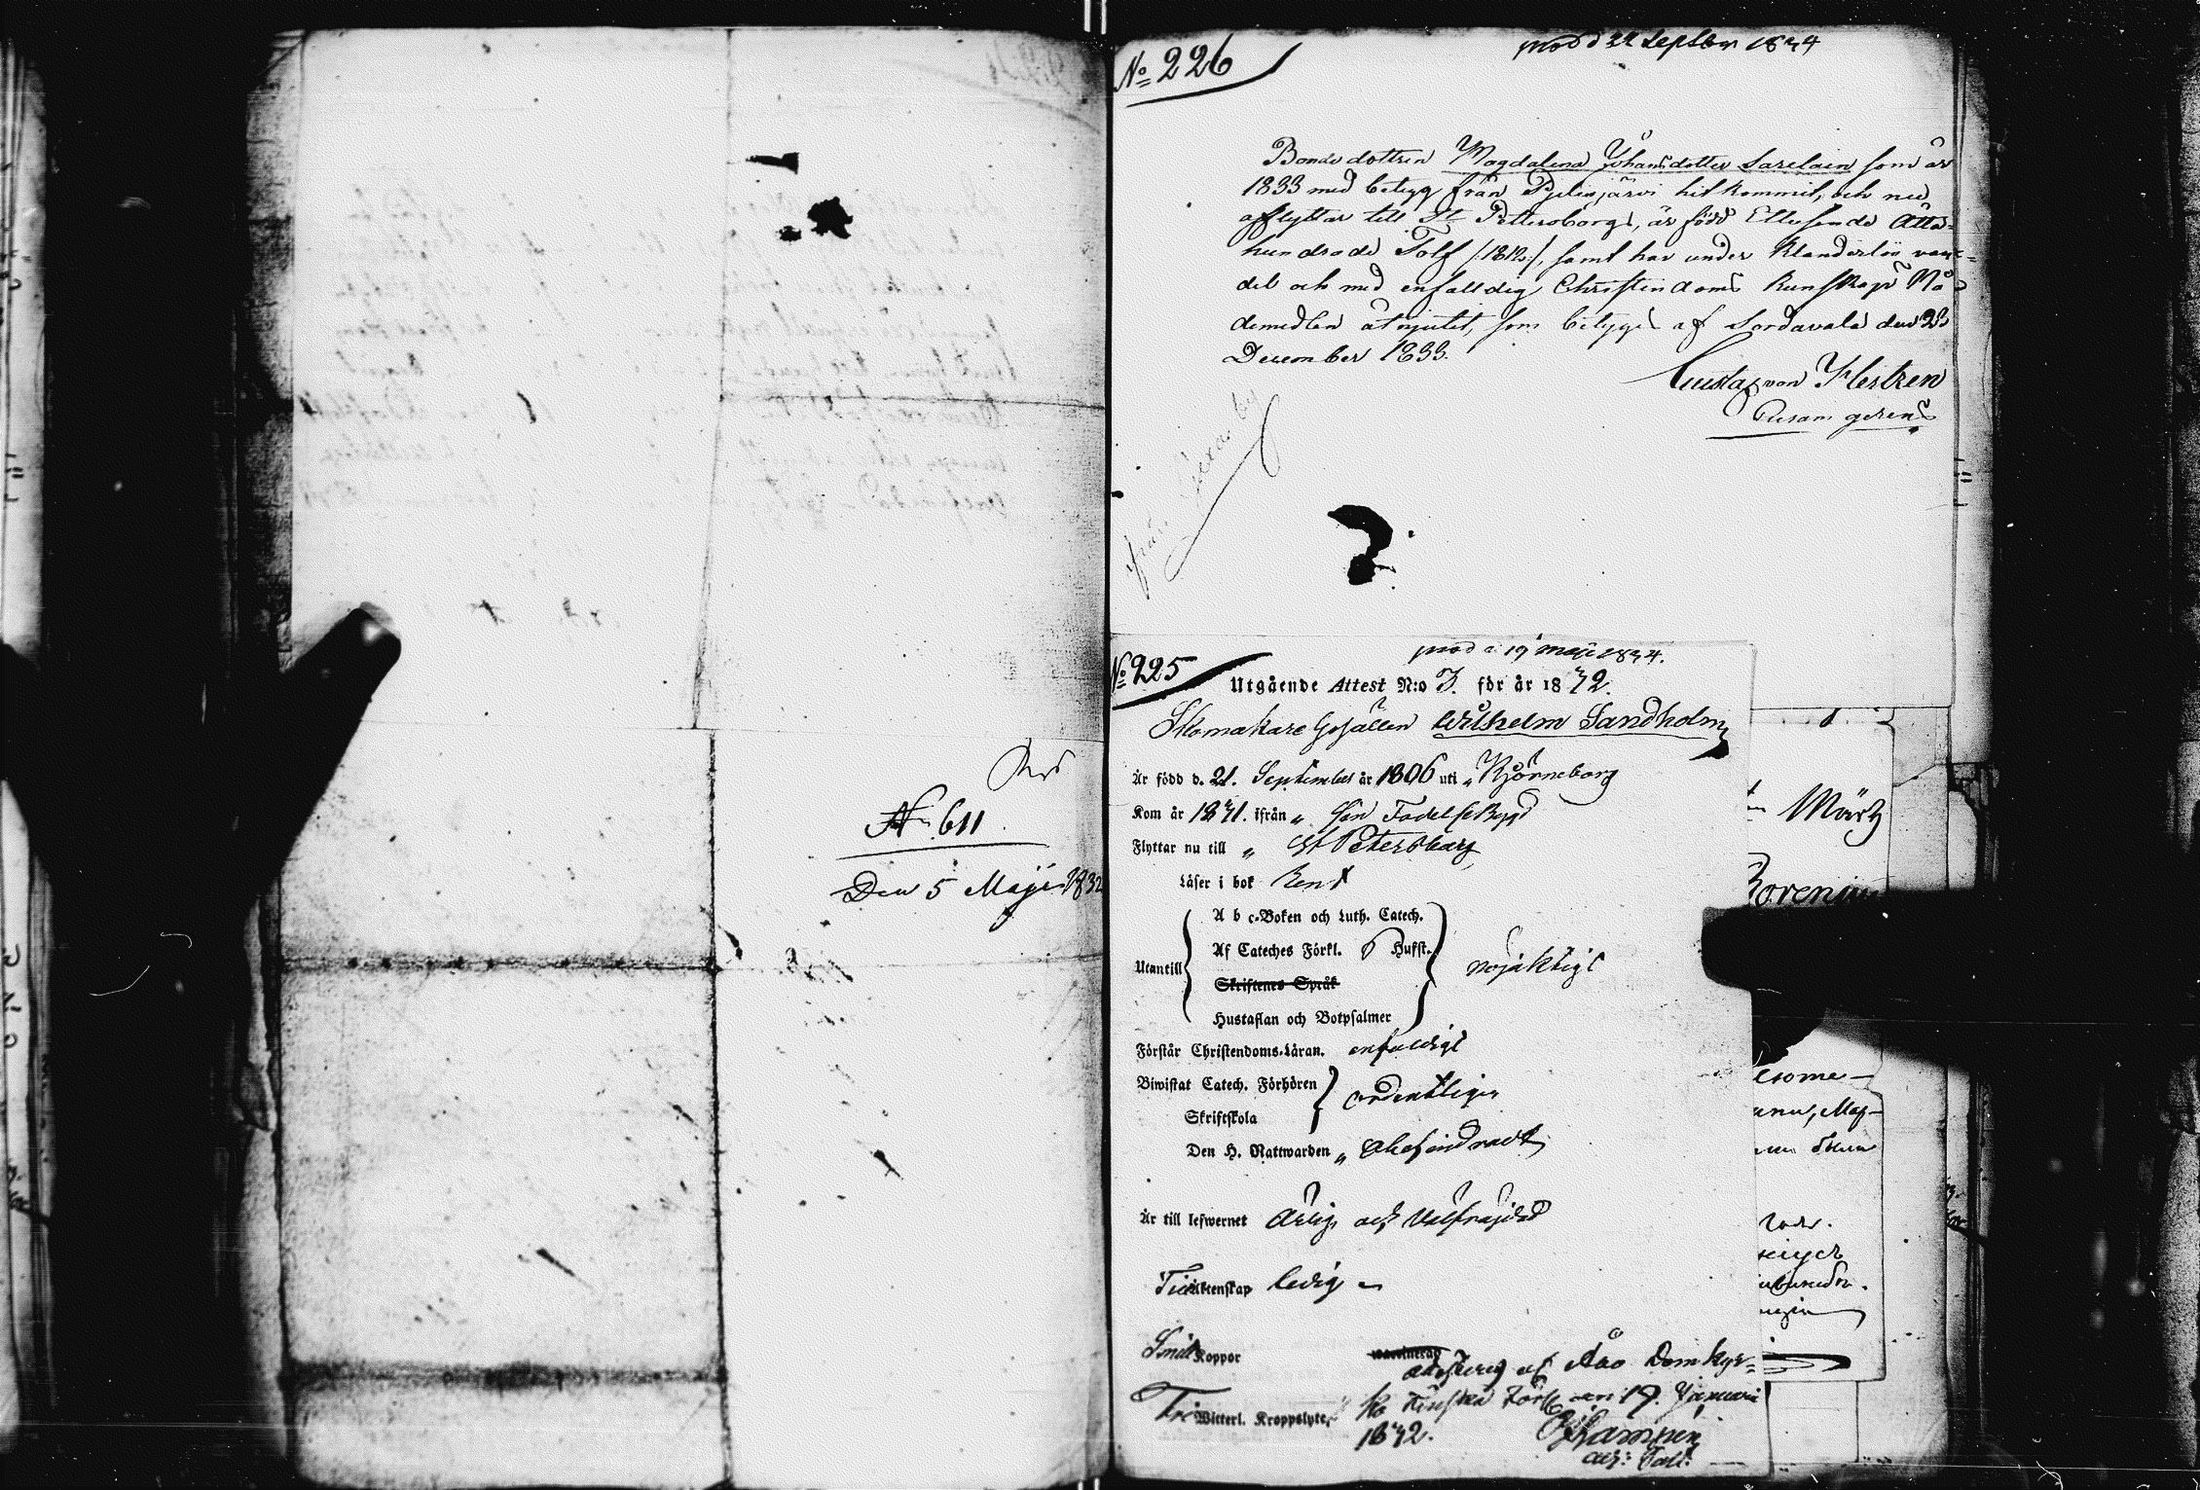 No 611
Den 5 Maji 1832
No 226
prod d 22 Septbr 1834
Bondedottren Magdalena Johansdotter Sarelain som år
1833 med betyg från Pyhäjärvi hitkommit, och nu
afflyttar till St Pettersborg, är född Ettusende Åtta-
hundrade Tolf /:1812:/, samt har under klanderlös van-
del och med enfalldig Christendoms kunskap Nå-
demedlen åtnjutit, som betygas af Sordavala den 23
December 1833.
Gustaf von
Curam gerens
No 225
prod d 19 maji 1834.
Utgående Attest N:o 3. för år 1832.
Skomakare Gesällen Wilhelm Sandholm
Är född d. 21. September år 1806 uti „ Björneborg
Kom år 1831. ifrån „ Sin Födelsebygd
Flyttar nu till „ St Petersburg
Läser i bok Rent
Utantill
A b c-Boken och Luth. Catech.
Af Cateches Förkl. Hufst.
Skriftenes Språk
Hustaflan och Botpsalmer
nöjaktigt
Förstår Christendoms-Läran. enfaldigt
Biwistat Catech. Förhören
Skriftskola
ordentligen
Den H. Nattwarden „ obehindradt
Är till lefwernet ärlig och välfräjdad
Till äktenskap ledig
Smittkoppor vaccinerad
attesterar af Åbo Domkyr-
Fri Witterl. Kroppslyte „ ko Finska Förs: den 17. Januarii
1832.
März